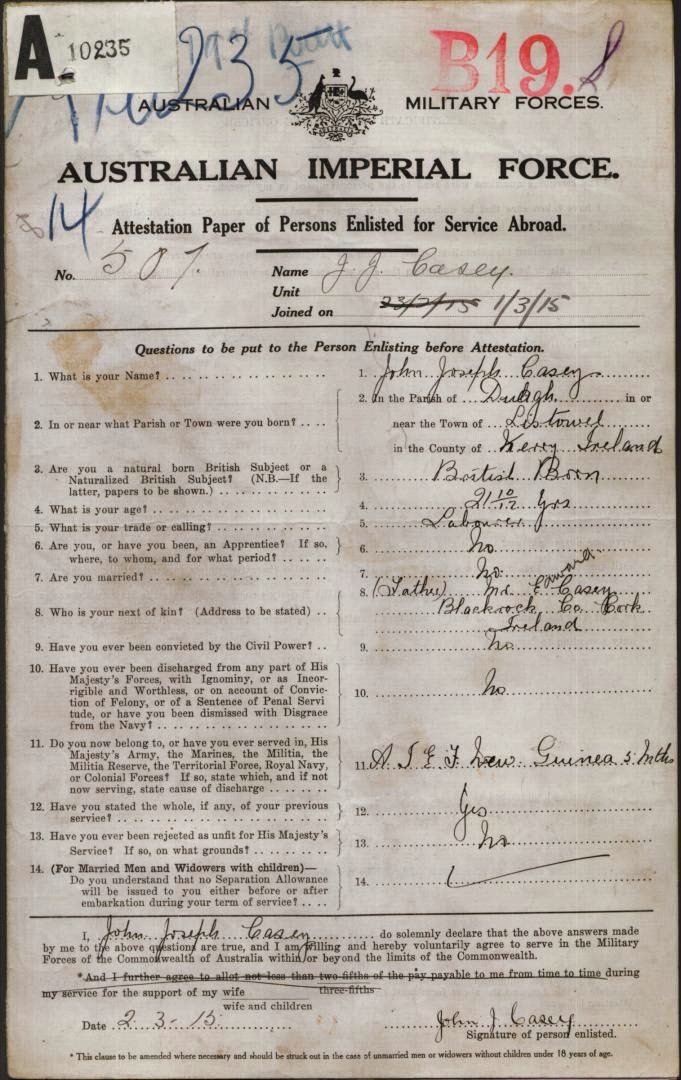 A 10235
B19.
AUSTRALIAN MILITARY FORCES.
AUSTRALIAN IMPERIAL FORCE.
14
Attestation Paper of Persons Enlisted for Service Abroad.
No. 507. Name J. J. Casey.
Unit
Joined on 23/2/15 1/3/15
Questions to be put to the Person Enlisting before Attestation.
1. What is your Name? .. 1. John Joseph Casey
2. In or near what Parish or Town were you born? .. 2. In the Parish of Duagh in or
near the Town of Listowel
in the County of Kerry Ireland
3. Are you a natural born British Subject or a
Naturalized British Subject? (N.B.—If the
latter, papers to be shown.) .. 3. British Born
4. What is your age? .. 4. 21 10/12 yrs
5. What is your trade or calling? .. 5. Labourer
6. Are you, or have you been, an Apprentice? If so,
where, to whom, and for what period? .. 6. No
7. Are you married? .. 7. No.
8. Who is your next of kin? (Address to be stated) .. 8. (Father) Mr E Edward Casey
Blackrock Co. Cork
Ireland
9. Have you ever been convicted by the Civil Power? .. 9. No.
10. Have you ever been discharged from any part of His
Majesty's Forces, with Ignominy, or as Incor-
rigible and Worthless, or on account of Convic-
tion of Felony, or of a Sentence of Penal Servi
tude, or have you been dismissed with Disgrace
from the Navy? .. 10. No
11. Do you now belong to, or have you ever served in, His
Majesty's Army, the Marines, the Militia, the
Militia Reserve, the Territorial Force, Royal Navy,
or Colonial Forces? If so, state which, and if not
now serving, state cause of discharge .. 11. A I E F New Guinea 5 Mths
12. Have you stated the whole, if any, of your previous
service? .. 12. Yes
13. Have you ever been rejected as unfit for His Majesty's
Service? If so, on what grounds? .. 13. No
14. (For Married Men and Widowers with children)—
Do you understand that no Separation Allowance
will be issued to you either before or after
embarkation during your term of service? .. 14.
I, John Joseph Casey do solemnly declare that the above answers made
by me to the above questions are true, and I am willing and hereby voluntarily agree to serve in the Military
Forces of the Commonwealth of Australia within or beyond the limits of the Commonwealth.
*And I further agree to allot not less than two-fifths of the pay payable to me from time to time during
three-fifths
my service for the support of my wife
wife and children
Date 2-3-15 John J. Casey
Signature of person enlisted.
* This clause to be amended where necessary and should be struck out in the case of unmarried men or widowers without children under 18 years of age.